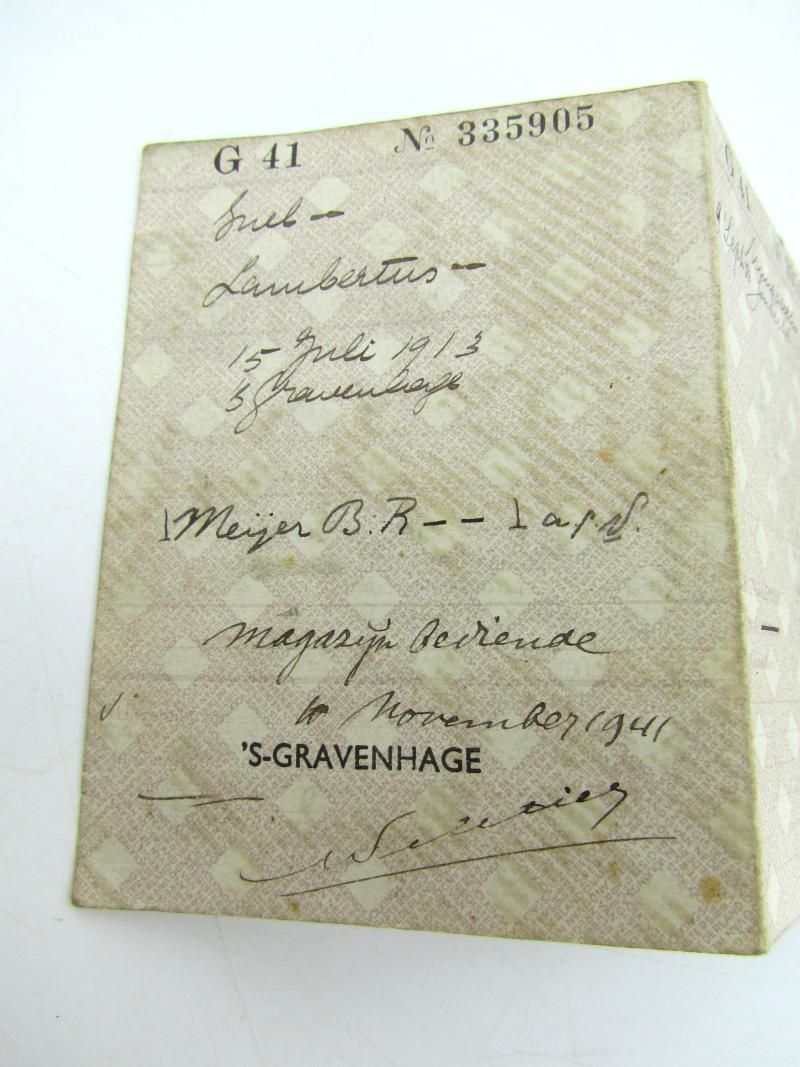 G 41 № 335905
Snel —
Lambertus —
15 Juli 1913
's Gravenhage
Meijer B. R — —
Magazijn Bediende
10 November 1941
'S-GRAVENHAGE